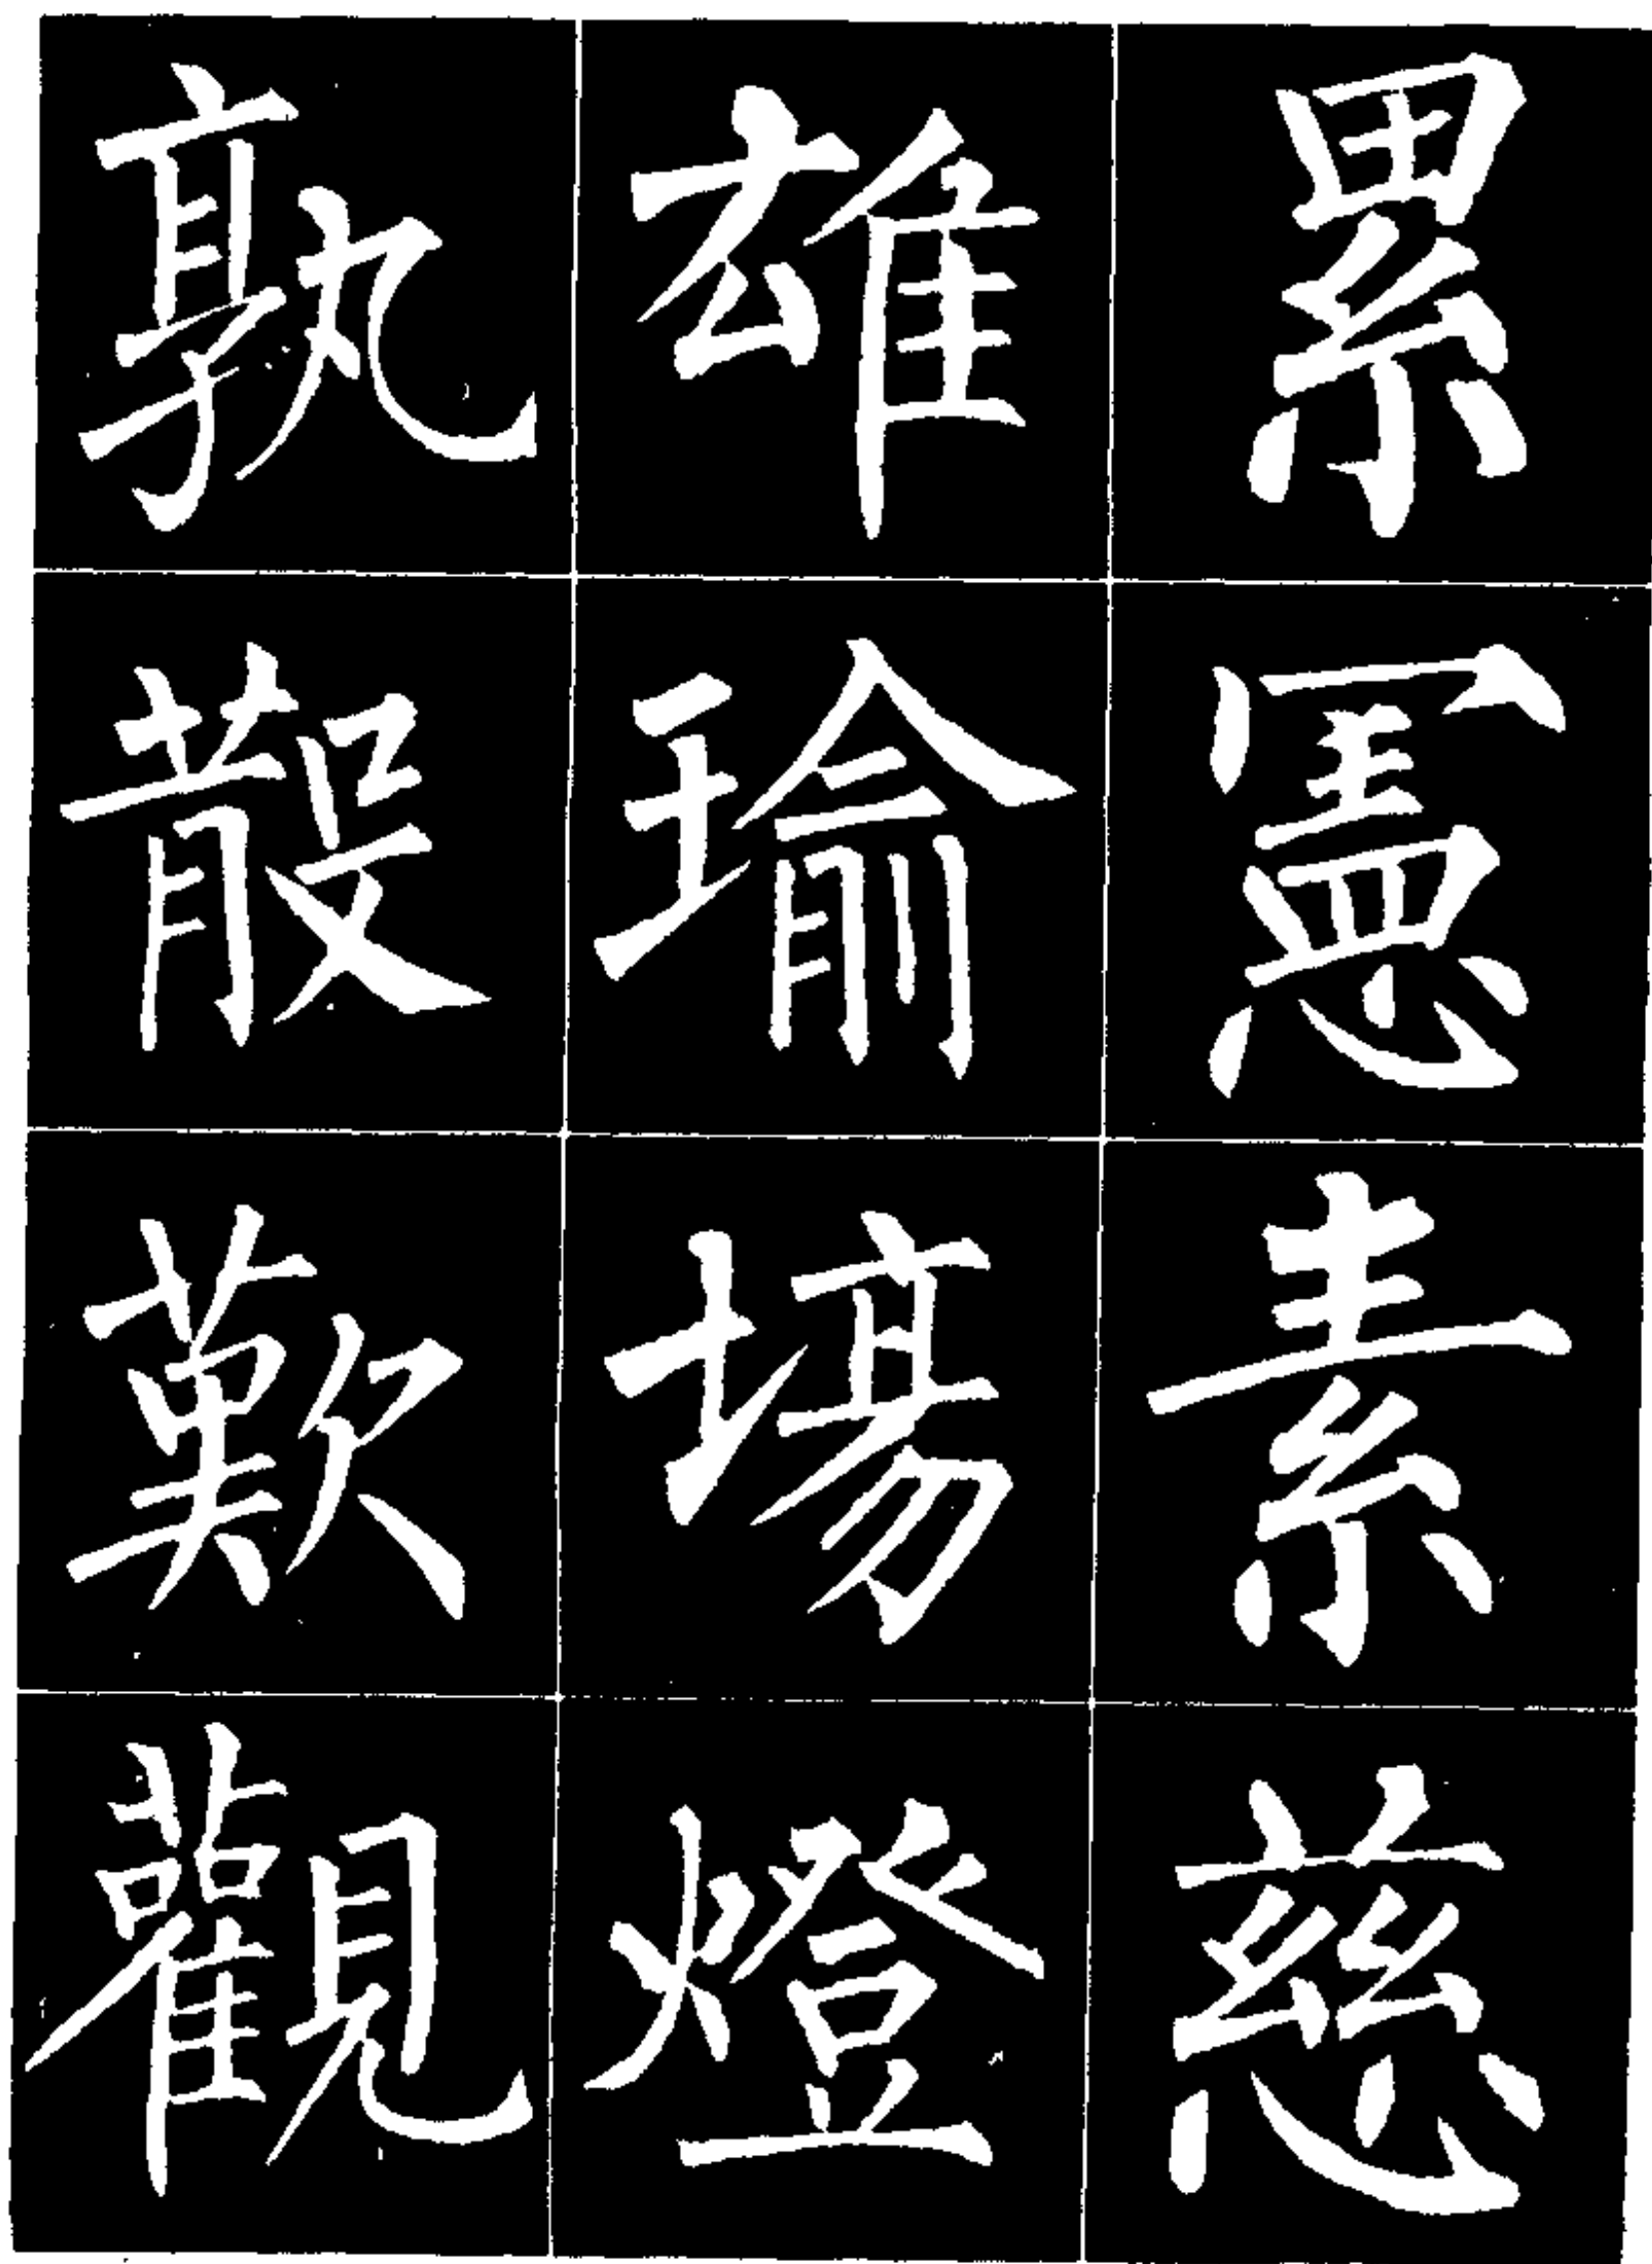 累憲素慈
雄瑜場燈
孰散歎觀